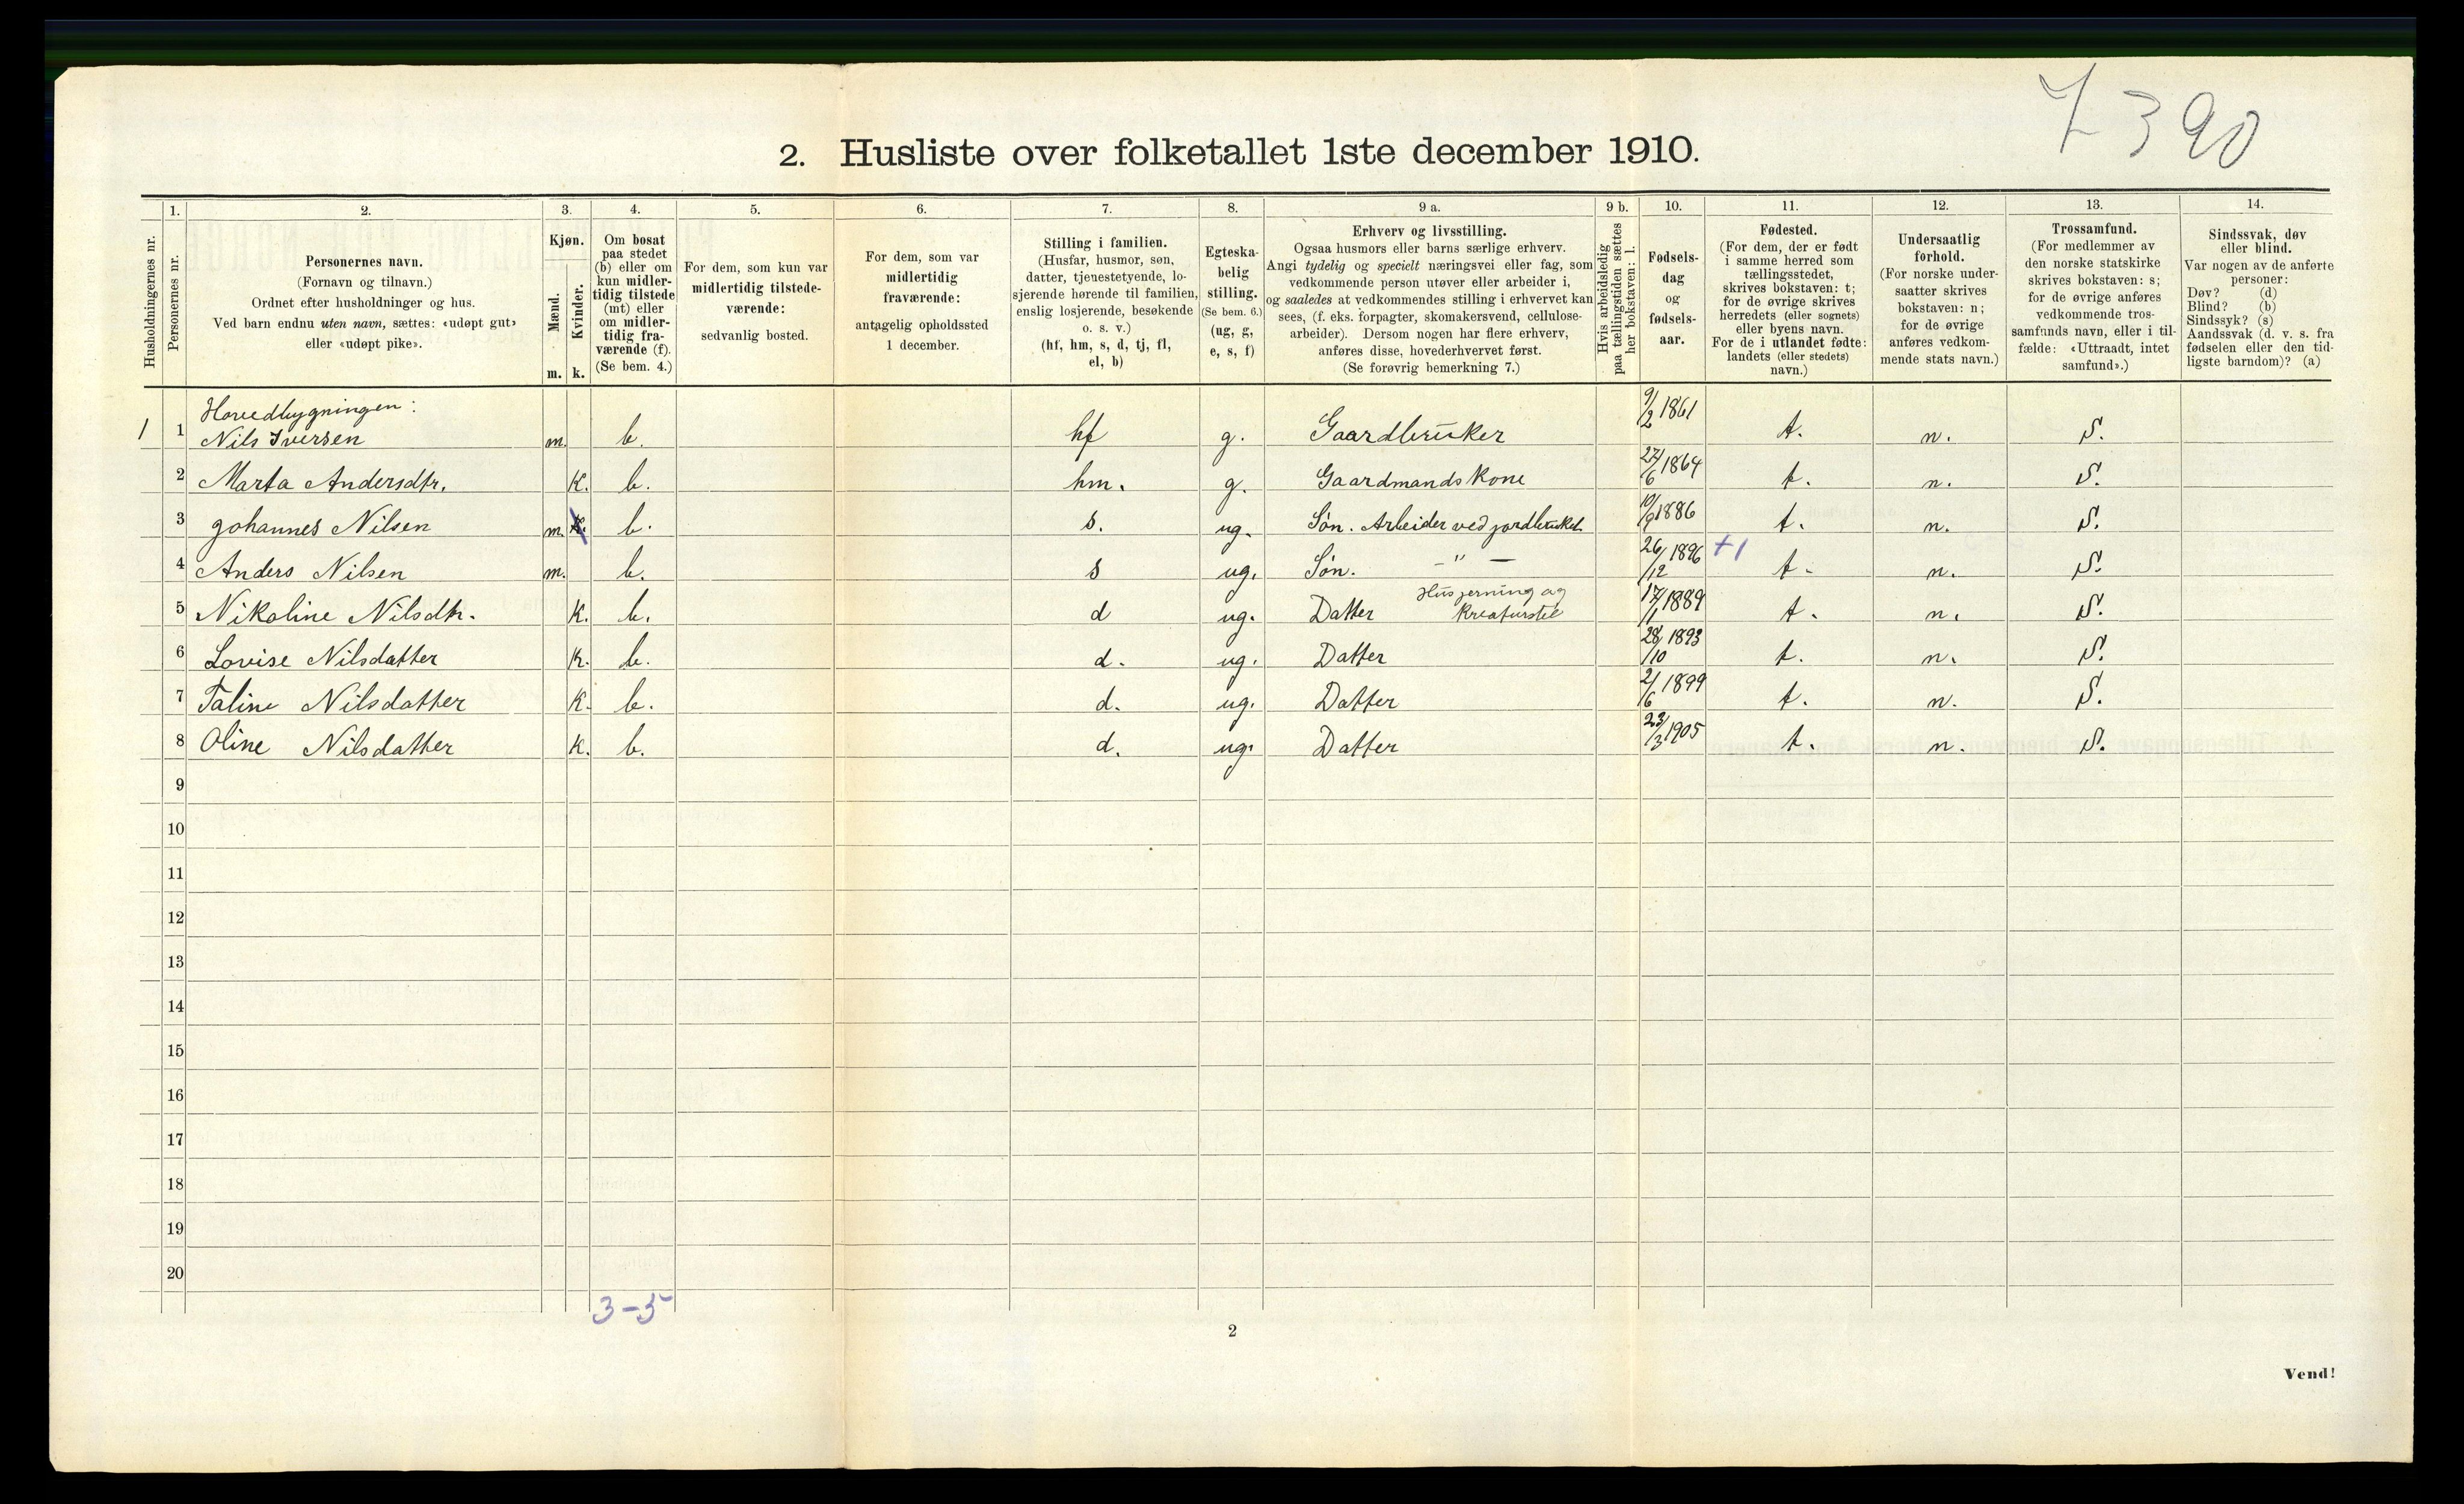 7 390
2. Husliste over folketallet 1ste december 1910.
Husholdningernes nr.
1. 2. 3. 4. 5. 6. 7. 8. 9 a. 9 b. 10. 11. 12. 13. 14.
Personernes nr.
Personernes navn.
(Fornavn og tilnavn.)
Ordnet efter husholdninger og hus.
Ved barn endnu uten navn, sættes: «udøpt gut»
eller «udøpt pike».
Kjøn.
Mænd.
Kvinder.
m. k.
Om bosat
paa stedet
(b) eller om
kun midler-
tidig tilstede
(mt) eller
om midler-
tidig fra-
værende (f).
(Se bem. 4.)
For dem, som kun var
midlertidig tilstede-
værende:
sedvanlig bosted.
For dem, som var
midlertidig
fraværende:
antagelig opholdssted
1 december.
Stilling i familien.
(Husfar, husmor, søn,
datter, tjenestetyende, lo-
sjerende hørende til familien,
enslig losjerende, besøkende
o. s. v.)
(hf, hm, s, d, tj, fl,
el, b)
Egteska-
belig
stilling.
(Se bem. 6.)
(ug, g,
e, s, f)
Erhverv og livsstilling.
Ogsaa husmors eller barns særlige erhverv.
Angi tydelig og specielt næringsvei eller fag, som
vedkommende person utøver eller arbeider i,
og saaledes at vedkommendes stilling i erhvervet kan
sees, (f. eks. forpagter, skomakersvend, cellulose-
arbeider). Dersom nogen har flere erhverv,
anføres disse, hovederhvervet først.
(Se forøvrig bemerkning 7.)
Hvis arbeidsledig
paa tællingstiden sættes
her bokstaven: l.
Fødsels-
dag
og
fødsels-
aar.
Fødested.
(For dem, der er født
i samme herred som
tællingsstedet,
skrives bokstaven: t;
for de øvrige skrives
herredets (eller sognets)
eller byens navn.
For de i utlandet fødte:
landets (eller stedets)
navn.)
Undersaatlig
forhold.
(For norske under-
saatter skrives
bokstaven: n;
for de øvrige
anføres vedkom-
mende stats navn.)
Trossamfund.
(For medlemmer av
den norske statskirke
skrives bokstaven: s;
for de øvrige anføres
vedkommende tros-
samfunds navn, eller i til-
fælde: «Uttraadt, intet
samfund».)
Sindssvak, døv
eller blind.
Var nogen av de anførte
personer:
Døv? (d)
Blind? (b)
Sindssyk? (s)
Aandssvak (d. v. s. fra
fødselen eller den tid-
ligste barndom)? (a)
Hovedbygningen:
1 1 Nils Iversen m. b. hf g. Gaardbruker 9/2 1861 t. n. S.
2 Marta Andersdtr. K. b. hm. g. Gaardmandskone 27/6 1864 t. n. S.
3 Johannes Nilsen m. K. b. s. ug. Søn. Arbeider ved jordbruket 10/9 1886 t. n. S.
4 Anders Nilsen m. b. s ug. Søn. - " - 26/12 1896 +1 t. n. S.
5 Nikoline Nilsdtr. K. b. d ug. Datter Husgjerning og kreaturstel 17/1 1889 t. n. S.
6 Lovise Nilsdatter K. b. d. ug. Datter 28/10 1893 t. n. S.
7 Taline Nilsdatter K. b. d. ug. Datter 2/6 1899 t. n. S.
8 Oline Nilsdatter K. b. d. ug. Datter 23/3 1905 t. n. S.
9
10
11
12
13
14
15
16
17
18
19
20
3-5
2
Vend!